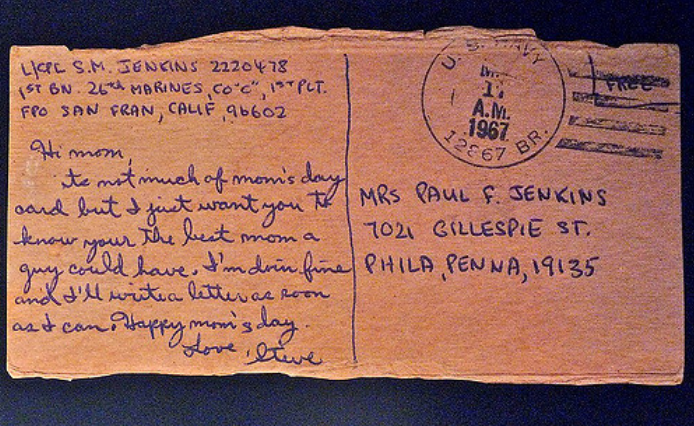 L/CPL S.M. JENKINS 2220478
1ST BN. 26th MARINES, CO"C", 1ST PLT.
FPO SAN FRAN, CALIF, 96602
Hi mom,
its not much of mom's day
card but I just want you to
know your the best mom a
guy could have. I'm doin fine
and I'll write a letter as soon
as I can. Happy mom's day.
Love, Steve
U.S. NAVY
A.M.
1967
12867 BR.
FREE
MRS PAUL F. JENKINS
7021 GILLESPIE ST.
PHILA, PENNA, 19135